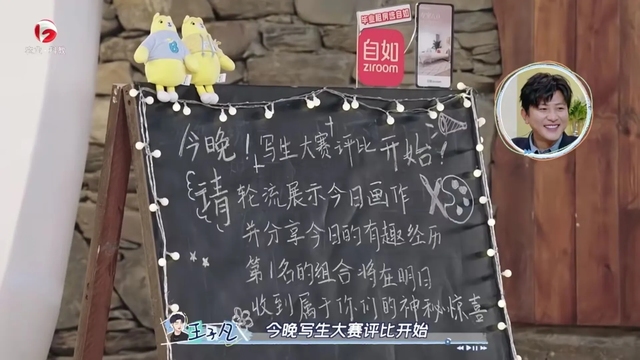 安徽 科教
毕业租房选自如
自如
ziroom
今晚！写生大赛评比开始！
请轮流展示今日画作
并分享今日的有趣经历
第1名的组合将在明日
收到属于你们的神秘惊喜
王子凡
今晚写生大赛评比开始